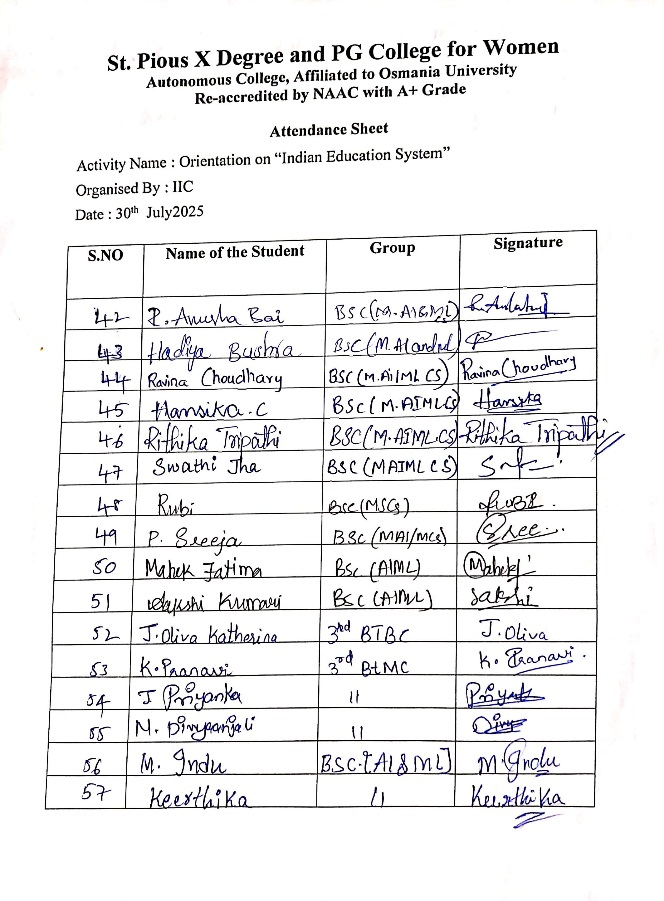 St. Pious X Degree and PG College for Women
Autonomous College, Affiliated to Osmania University
Re-accredited by NAAC with A+ Grade
Attendance Sheet
Activity Name : Orientation on “Indian Education System”
Organised By : IIC
Date : 30th July2025
S.NO Name of the Student Group Signature
42 P. Anusha Bai BSC(M.AI&ML)
43 Hadiya Bushra BSC(M.AI
44 Ravina Choudhary BSC (M.AI/ML CS) Ravina Choudhary
45 Hansika.C BSC (M.AIMLCS) Hansika
46 Rithika Tripathi BSC(M.AIML.CS) Rithika Tripathi
47 Swathi Jha BSC (MAIML CS)
48 Rubi BSC (MSCs) RUBI
49 P. Sreeja BSC (MAI/MCs) Sree
50 Mahek Fatima BSC (AIML) Mahek
51 Sakshi Kumari BSC (AIML) Sakshi
52 J.Oliva Katherina 3rd BTBC J.Oliva
53 K.Pranavi 3rd BtMC K. Pranavi.
54 J Priyanka 11 Priyanka
55 N. Divyaanjali 11 Divy
56 M. Indu BSC-[AI & ML] M Indu
57 Keerthika 11 Keerthika